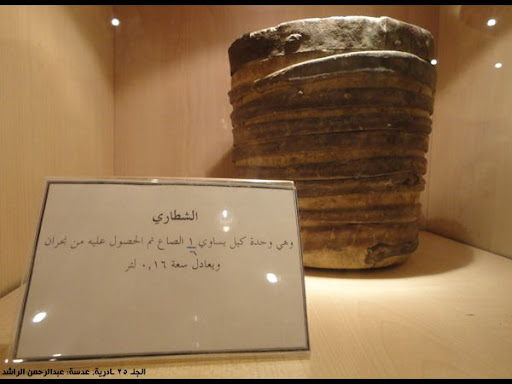 الشطاري
وهي وحدة كيل يساوي ١/٦ الصاع تم الحصول عليه من نجران
ويعادل سعة ٠,١٦ لتر
عدسة: عبدالرحمن الراشد